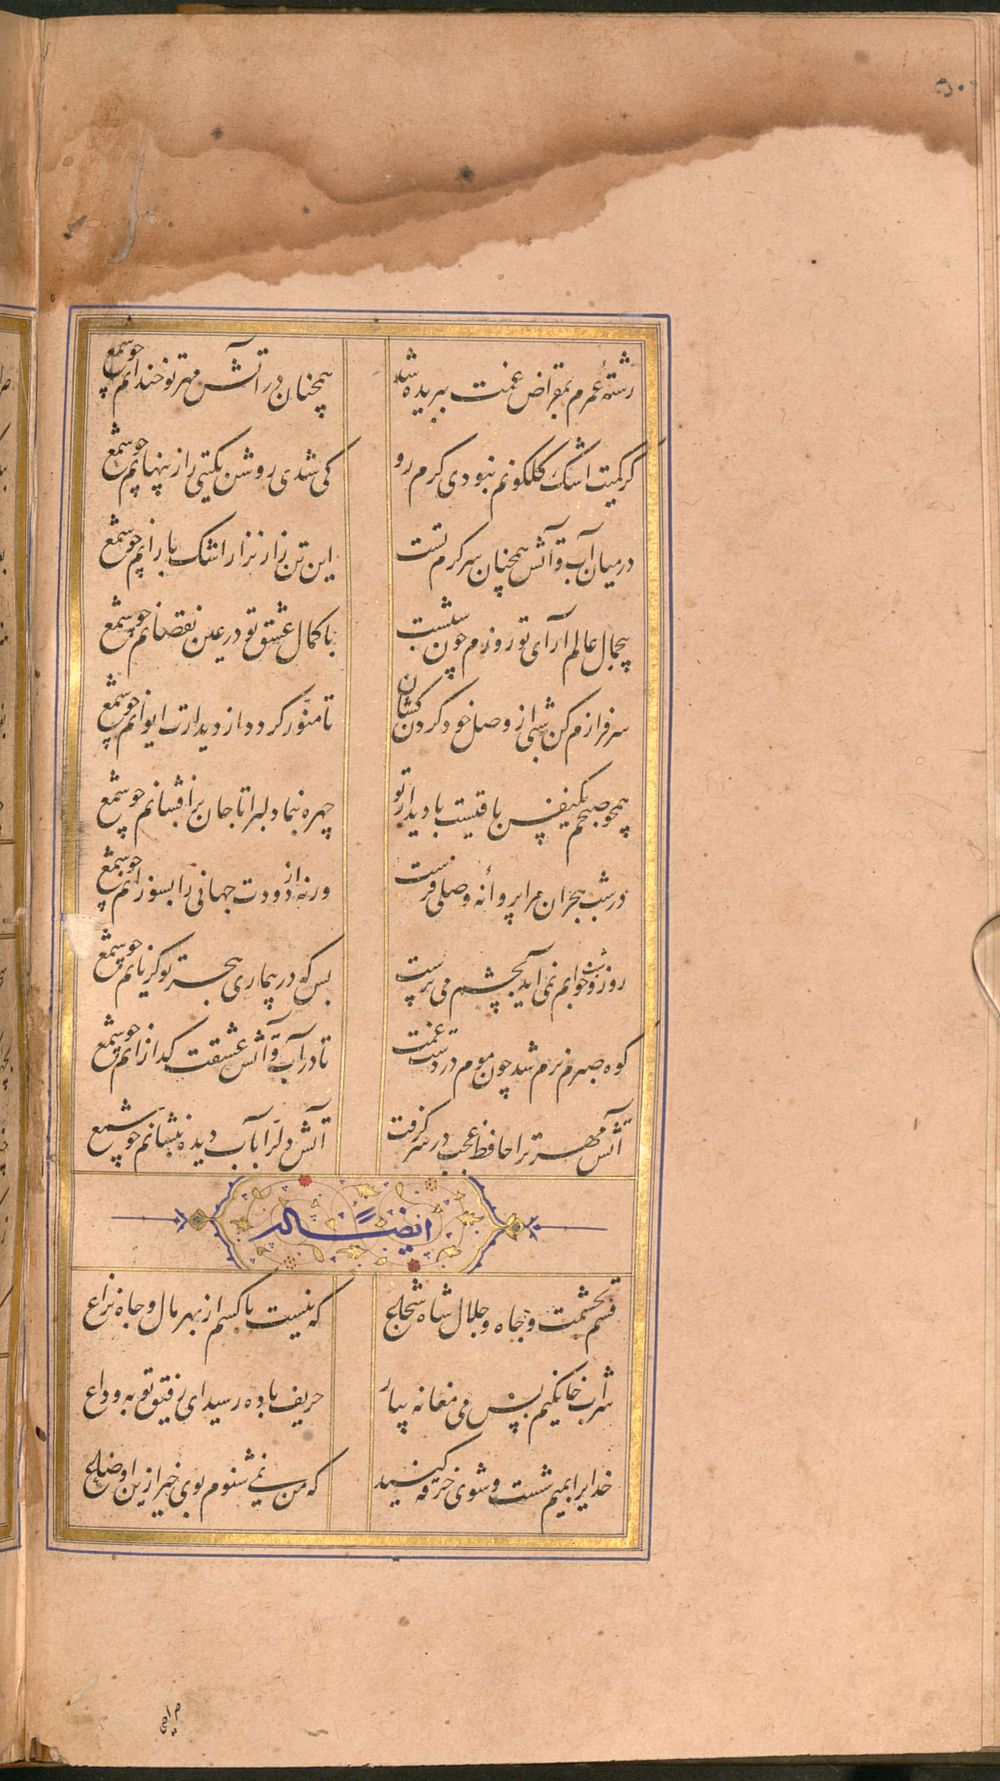 رشتهٔ عمرم بمقراض غمت ببریده شد
همچنان در آتش مهر تو خندانم چو شمع
گر کمیت اشک گلگونم نبودی گرم رو
کی شدی روشن بگیتی راز پنهانم چو شمع
در میان آب و آتش همچنان سرگرم تست
این تن زار نزار اشک بارانم چو شمع
بیجمال عالم آرای تو روزم چون شبست
با کمال عشق تو در عین نقصانم چو شمع
سرفرازم کن شبی از وصل خود گردن کشان
تا منور گردد از دیدارت ایوانم چو شمع
همچو صبحم یکنفس باقیست با دیدار تو
چهره بنما دلبرا تا جان برافشانم چو شمع
در شب هجران مرا پروانه وصلی فرست
ورنه از دودت جهانی را بسوزانم چو شمع
روز و شب خوابم نمی آید بچشم می پرست
بس که در بیماری هجر تو گریانم چو شمع
کوه صبرم نرم شد چون موم در دست غمت
تا در آب و آتش عشقت گدازانم چو شمع
آتش مهر ترا حافظ عجب در سر گرفت
آتش دل را بآب دیده بنشانم چو شمع
ایضاً له
قسم بحشمت و جاه و جلال شاه شجاع
که نیست با کسم از بهر مال و جاه نزاع
شراب خانگیم بس می مغانه بیار
حریف باده رسید ای رفیق توبه وداع
خدایرا بمیم شست و شوی خرقه کنید
که من نمی شنوم بوی خیر ازین اوضاع